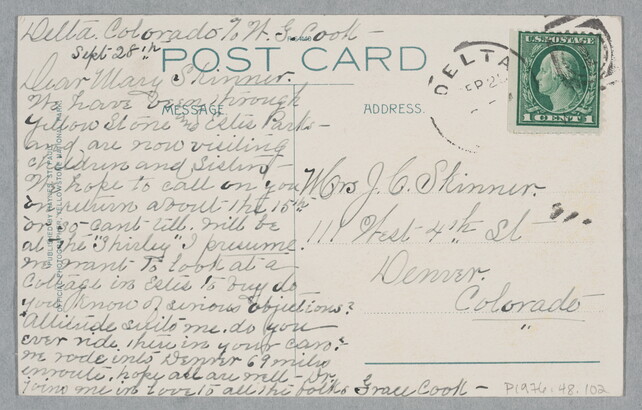 Delta. Colorado % W. G. Cook -
Sept - 28th
POST CARD
Dear Mary Skinner.
We have been through
MESSAGE
Yellow Stone and Estes Parks -
and are now visiting
children and Sister -
We hope to call on you
on return about the 15th
or so - cant tell. will be
at the "Shirley" I presume.
we want to look at a
Cottage in Estes to buy do
you know of serious objections?
Altitude suits me. do you
ever ride there in your car?
we rode into Denver 69 miles
enroute. hope all are well - Dr.
Joins me in love to all the folks Grace Cook -
ADDRESS.
DELTA
SEP 2
U.S. POSTAGE
1 CENT 1
Mrs J. C. Skinner.
111 West - 4th St
Denver.
Colorado
P1976.48.102